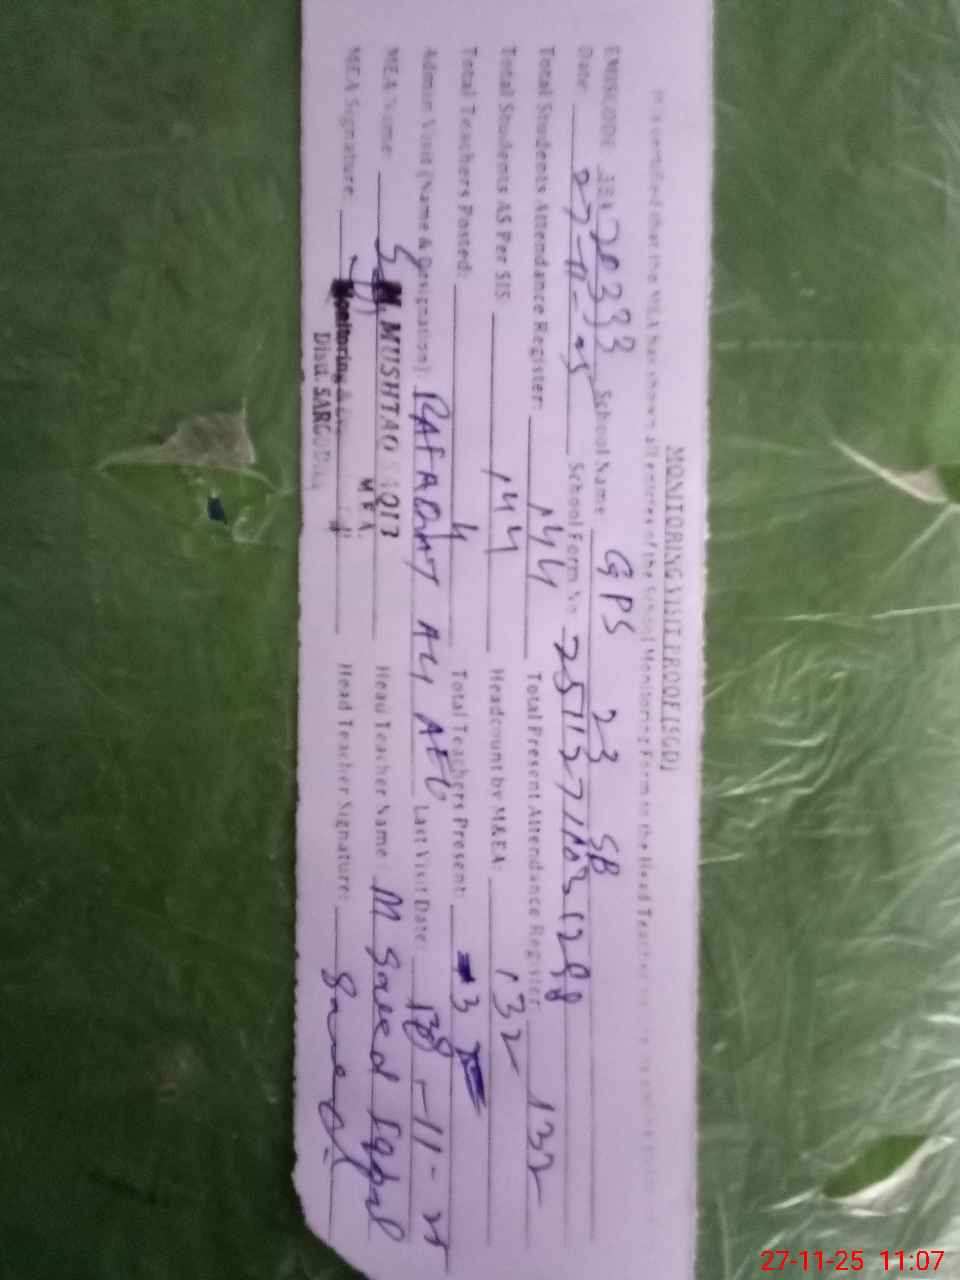 MONITORING VISIT PROOF (SGD)
It is certified that the MEA has shown all entries of the School Monitoring Form to the Head Teacher
EMISCODE: 20333 School Name: GPS 23 SB
Date: 27-11-25 School Form No
Total Students Attendance Register: 144 Total Present Attendance Register: 132
Total Students AS Per SIS: 144 Headcount by M&EA: 132
Total Teachers Posted: 4 Total Teachers Present: 3
Admin Visit (Name & Designation): RAFAQAT ALI AEO Last Visit Date: -11-25
MEA Name: M. MUSHTAQ Head Teacher Name: M Saeed Iqbal
M E A.
MEA Signature: Head Teacher Signature: Saeed
Monitoring &
Distt. SARGODHA
27-11-25 11:07